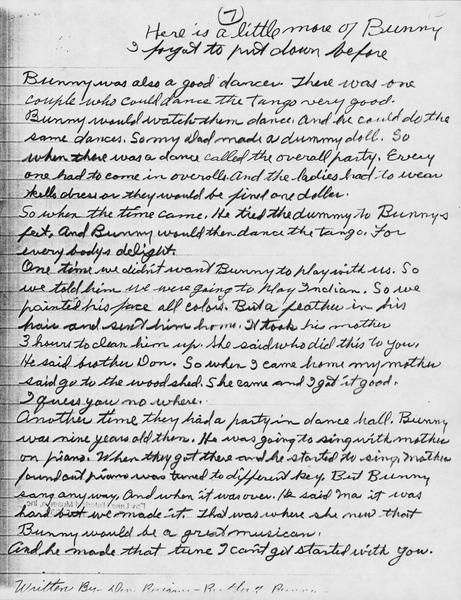 7
Here is a little more of Bunny
I forgot to put down before
Bunny was also a good dancer. There was one
couple who could dance the Tango very good.
Bunny would watch them dance. And he could do the
same dances. So my dad made a dummy doll. So
when there was a dance called the overall party. Every
one had to come in overalls And the ladies had to wear
dress or they would be fined one dollar.
So when the time came. He tied the dummy to Bunnys
feet, And Bunny would then dance the tango. For
every bodys delight.
One time we didn't want Bunny to play with us. So
we told him we were going to play Indian. So we
painted his face all colors. But a feather in his
hair and sent him home. It took his mother
3 hours to clean him up. She said who did this to you.
He said brother Don. So when I came home my mother
said go to the wood shed. She came and I got it good.
I guess you no where.
Another time they had a party in dance hall. Bunny
was nine years old then. He was going to sing with mother
on piano. When they got there and he started to sing, Mother
found out piano was tuned to different key. But Bunny
sang any way. And when it was over. He said Ma it was
hard but we made it. That was where she new that
Bunny would be a great musican.
And he made that tune I can't get started with you.
Written By- Don